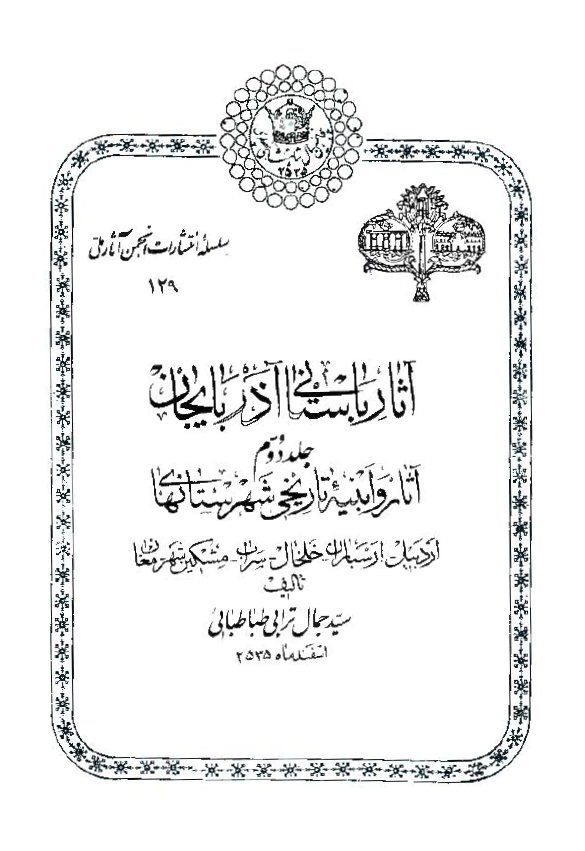 ۲۵۳۵
سلسلهٔ انتشارات انجمن آثار ملی
۱۲۹
آثار باستانی آذربایجان
جلد دوّم
آثار و ابنیهٔ تاریخی شهرستانهای
اردبیل - ارسباران - خلخال - سراب - مشکین شهر - مغان
تالیف
سیّد جمال ترابی طباطبائی
اسفندماه ۲۵۳۵